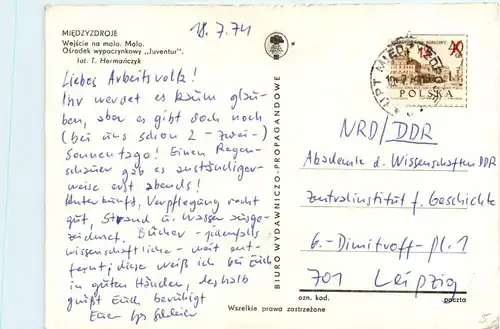 MIĘDZYZDROJE
Wejście na molo. Molo.
Ośrodek wypoczynkowy „Juventur".
fot. T. Hermańczyk
18.7.74
Liebes Arbeitsvolk!
Ihr werdet es kaum glau-
ben, aber es gibt doch noch
(bei uns schon 2 - zwei -)
Sonnentage! Einen Regen-
schauer gab es anständiger-
weise erst abends!
Unterkunft, Verpflegung recht
gut, Strand u. Wasser ausge-
zeichnet. Bücher - jedenfalls
wissenschaftliche - weit ent-
fernt; diese weiß ich bei Euch
in guten Händen, deshalb
grüßt Euch beruhigt
Euer
BIURO WYDAWNICZO-PROPAGANDOWE
40
POLSKA
NRD/DDR
Akademie d. Wissenschaften DDR
Zentralinstitut f. Geschichte
G.-Dimitroff-Pl. 1
701 Leipzig
ozn. kod.
poczta
Wszelkie prawa zastrzeżone